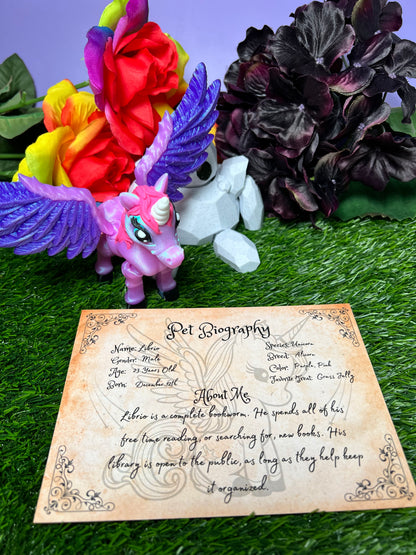 Pet Biography
Name: Librio
Gender: Male
Age: 23 Years Old
Born: December 11th
Species: Unicorn
Breed: Alicorn
Color: Purple, Pink
Favorite Treat: Grass Jelly
About Me
Librio is a complete bookworm. He spends all of his
free time reading, or searching for, new books. His
library is open to the public, as long as they help keep
it organized.